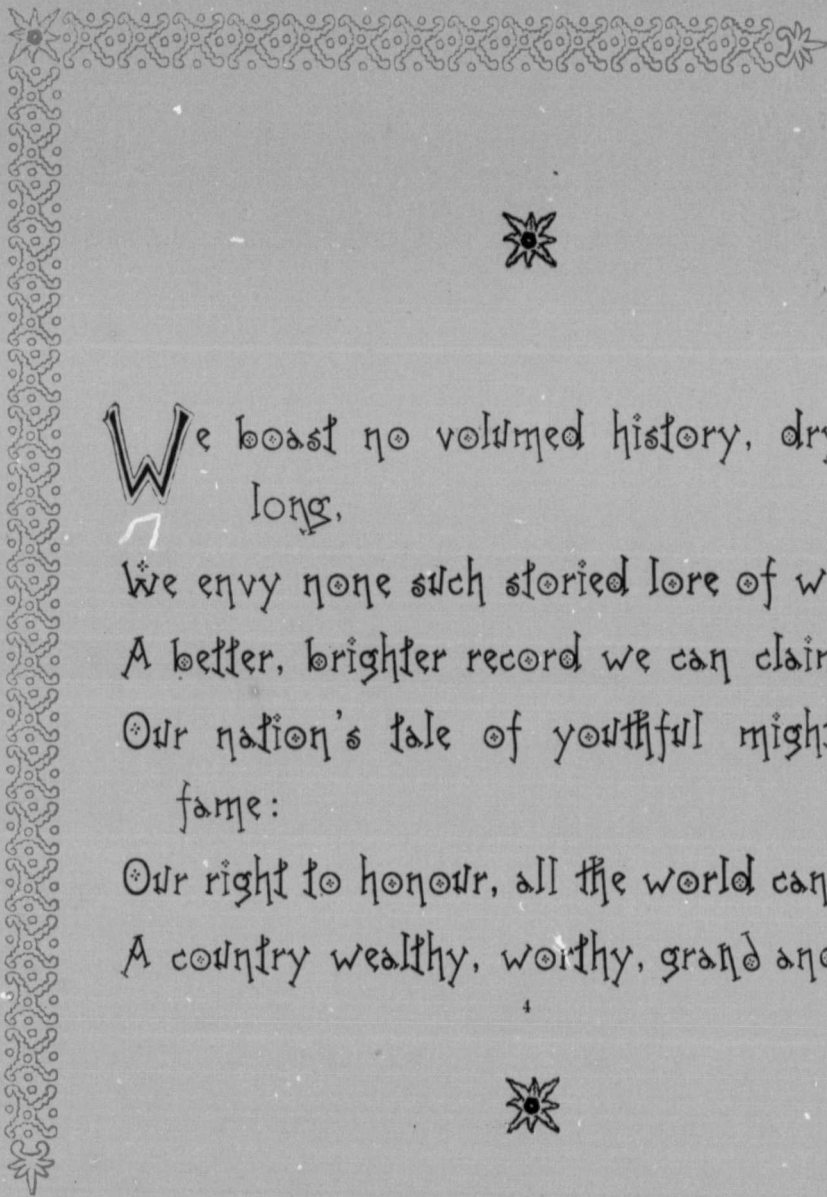 We boast no volumed history, dry
long,
We envy none such storied lore of w
A better, brighter record we can clai
Our nation's tale of youthful might
fame:
Our right to honour, all the world can
A country wealthy, worthy, grand and
4